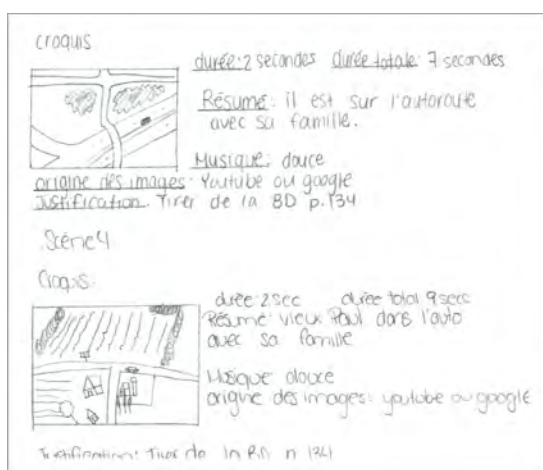 croquis
durée: 2 secondes durée totale: 7 secondes
Résumé: il est sur l'autoroute
avec sa famille.
Musique: douce
origine des images: Youtube ou google
Justification: Tirer de la BD p.134
Scène 4
Croquis:
durée: 2 sec durée total 9 secs
Résumé: vieux Paul dans l'auto
avec sa famille
Musique douce
origine des images: youtube ou google
Justification: Tirer de la BD p 134